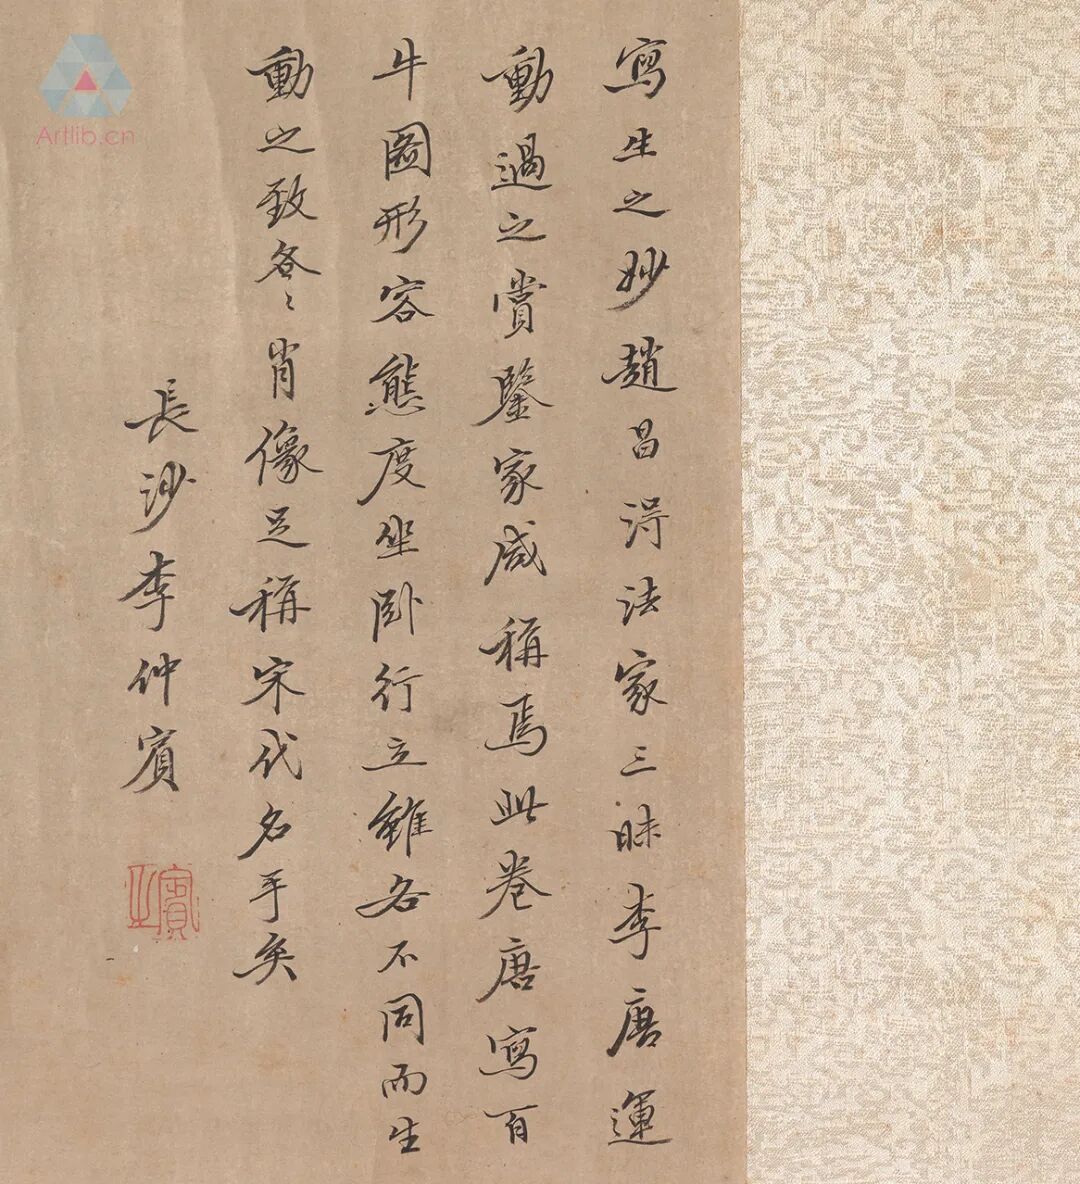 寫生之妙趙昌得法家三昧李唐運
動過之賞鑒家咸稱焉此卷唐寫百
牛圖形容態度坐卧行立雖各不同而生
動之致各〻肖像足稱宋代名手矣
長沙李仲賓
仲賓
Artlib.cn